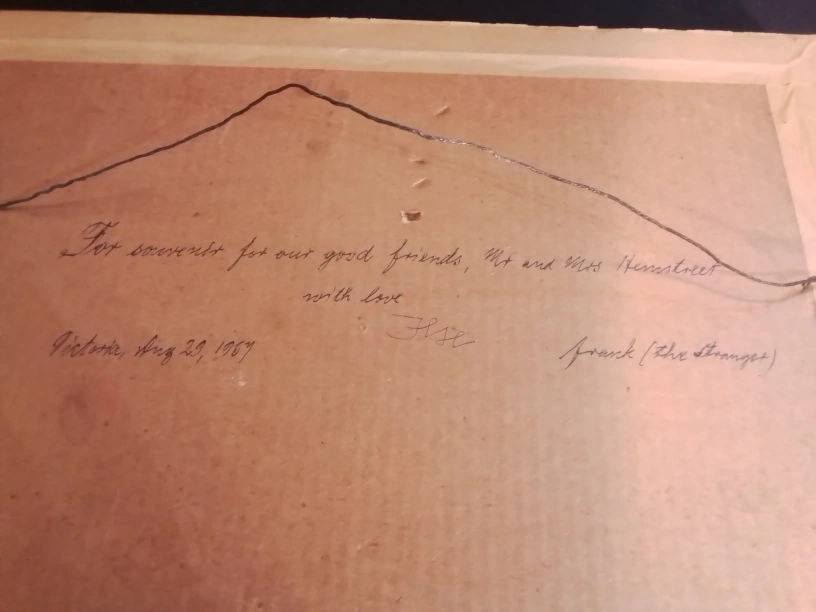 For souvenir for our good friends, Mr and Mrs Hemstreet
with love
Ilse
Victoria, Aug 29, 1967
Frank (the Stranger)